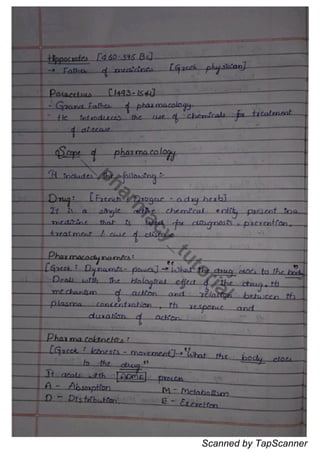 Hippocrates [460-375 BC]
→ Father of medicines [Greek physician]
Paracelsus [1493-1541]
- Grand Father of pharmacology.
- He introduces the use of chemicals for treatment
of disease
Scope of pharmacology
It includes the following :-
Drug: [French: Drogue - a dry herb]
It is a single active chemical entity present in a
medicine that is used for diagnosis, prevention,
treatment / cure of disease
Pharmacodynamics:
[Greek: Dynamis - power] → "What the drug does to the body"
Deals with the biological effect of the drug, th
mechanism of action and relation between th
plasma concentration, th response and
duration of action.
Pharmacokinetics:
[Greek: kinesis - movement] → "What the body does
to the drug."
It deals with [ADME] process
A - Absorption M - Metabolism
D - Distribution E - Excretion
pharmacy_tutorial
Scanned by TapScanner